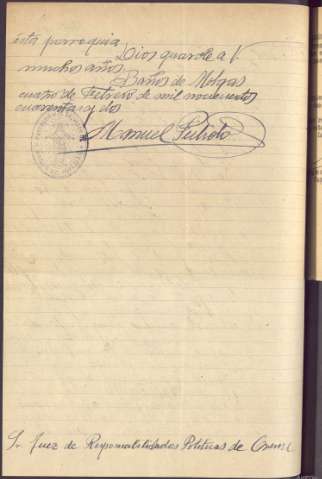 esta parroquia.
Dios guarde a V.
muchos años.
Baños de Molgas
cuatro de Febrero de mil novecientos
cuarenta y dos
Manuel
Sr Juez de Responsabilidades Politicas de Orense